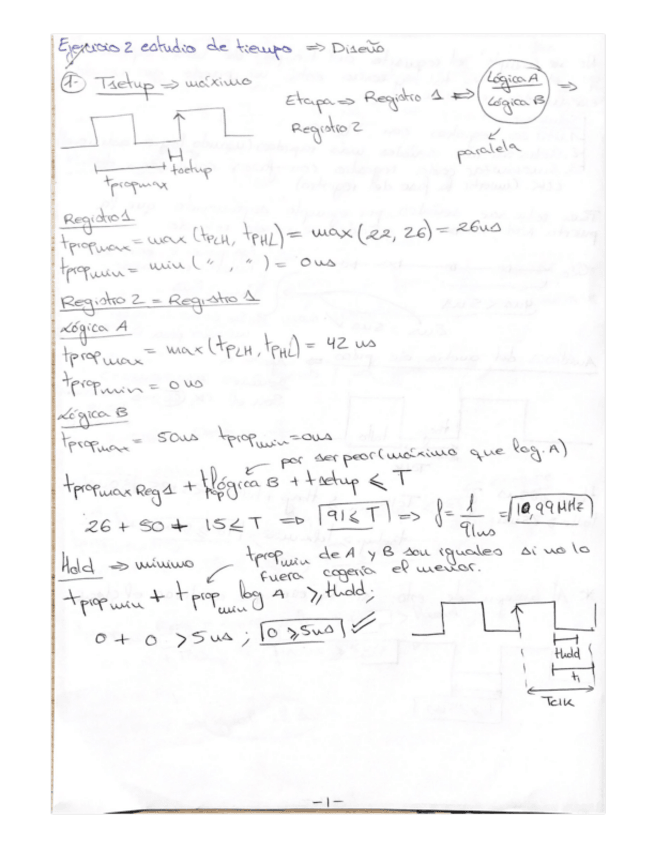 Ejercicio 2 estudio de tiempo ⇒ Diseño
1- Tsetup ⇒ máximo
Etapa ⇒ Registro 1 ⇔ Lógica A ⇒
Lógica B
Registro 2
paralela
tsetup
tpropmax
Registro 1
tpropmax = max (tPLH, tPHL) = max (22, 26) = 26ns
tpropmin = min ( " , " ) = 0ns
Registro 2 = Registro 1
Lógica A
tpropmax = max (tPLH, tPHL) = 42 ns
tpropmin = 0ns
Lógica B
tpropmax = 50ns tpropmin = 0ns
por ser peor (máximo que log. A)
tpropmax Reg 1 + tprop lógica B + tsetup ≤ T
26 + 50 + 15 ≤ T ⇒ 91 ≤ T ⇒ f = 1/91ns = 10,99 MHz
Hold ⇒ mínimo
tpropmin de A y B son iguales si no lo
fuera cogería el menor.
tpropmin + tpropmin log A ≥ Thold;
0 + 0 > 5ns ; 0 ≥ 5ns
Thold
Tclk
-1-